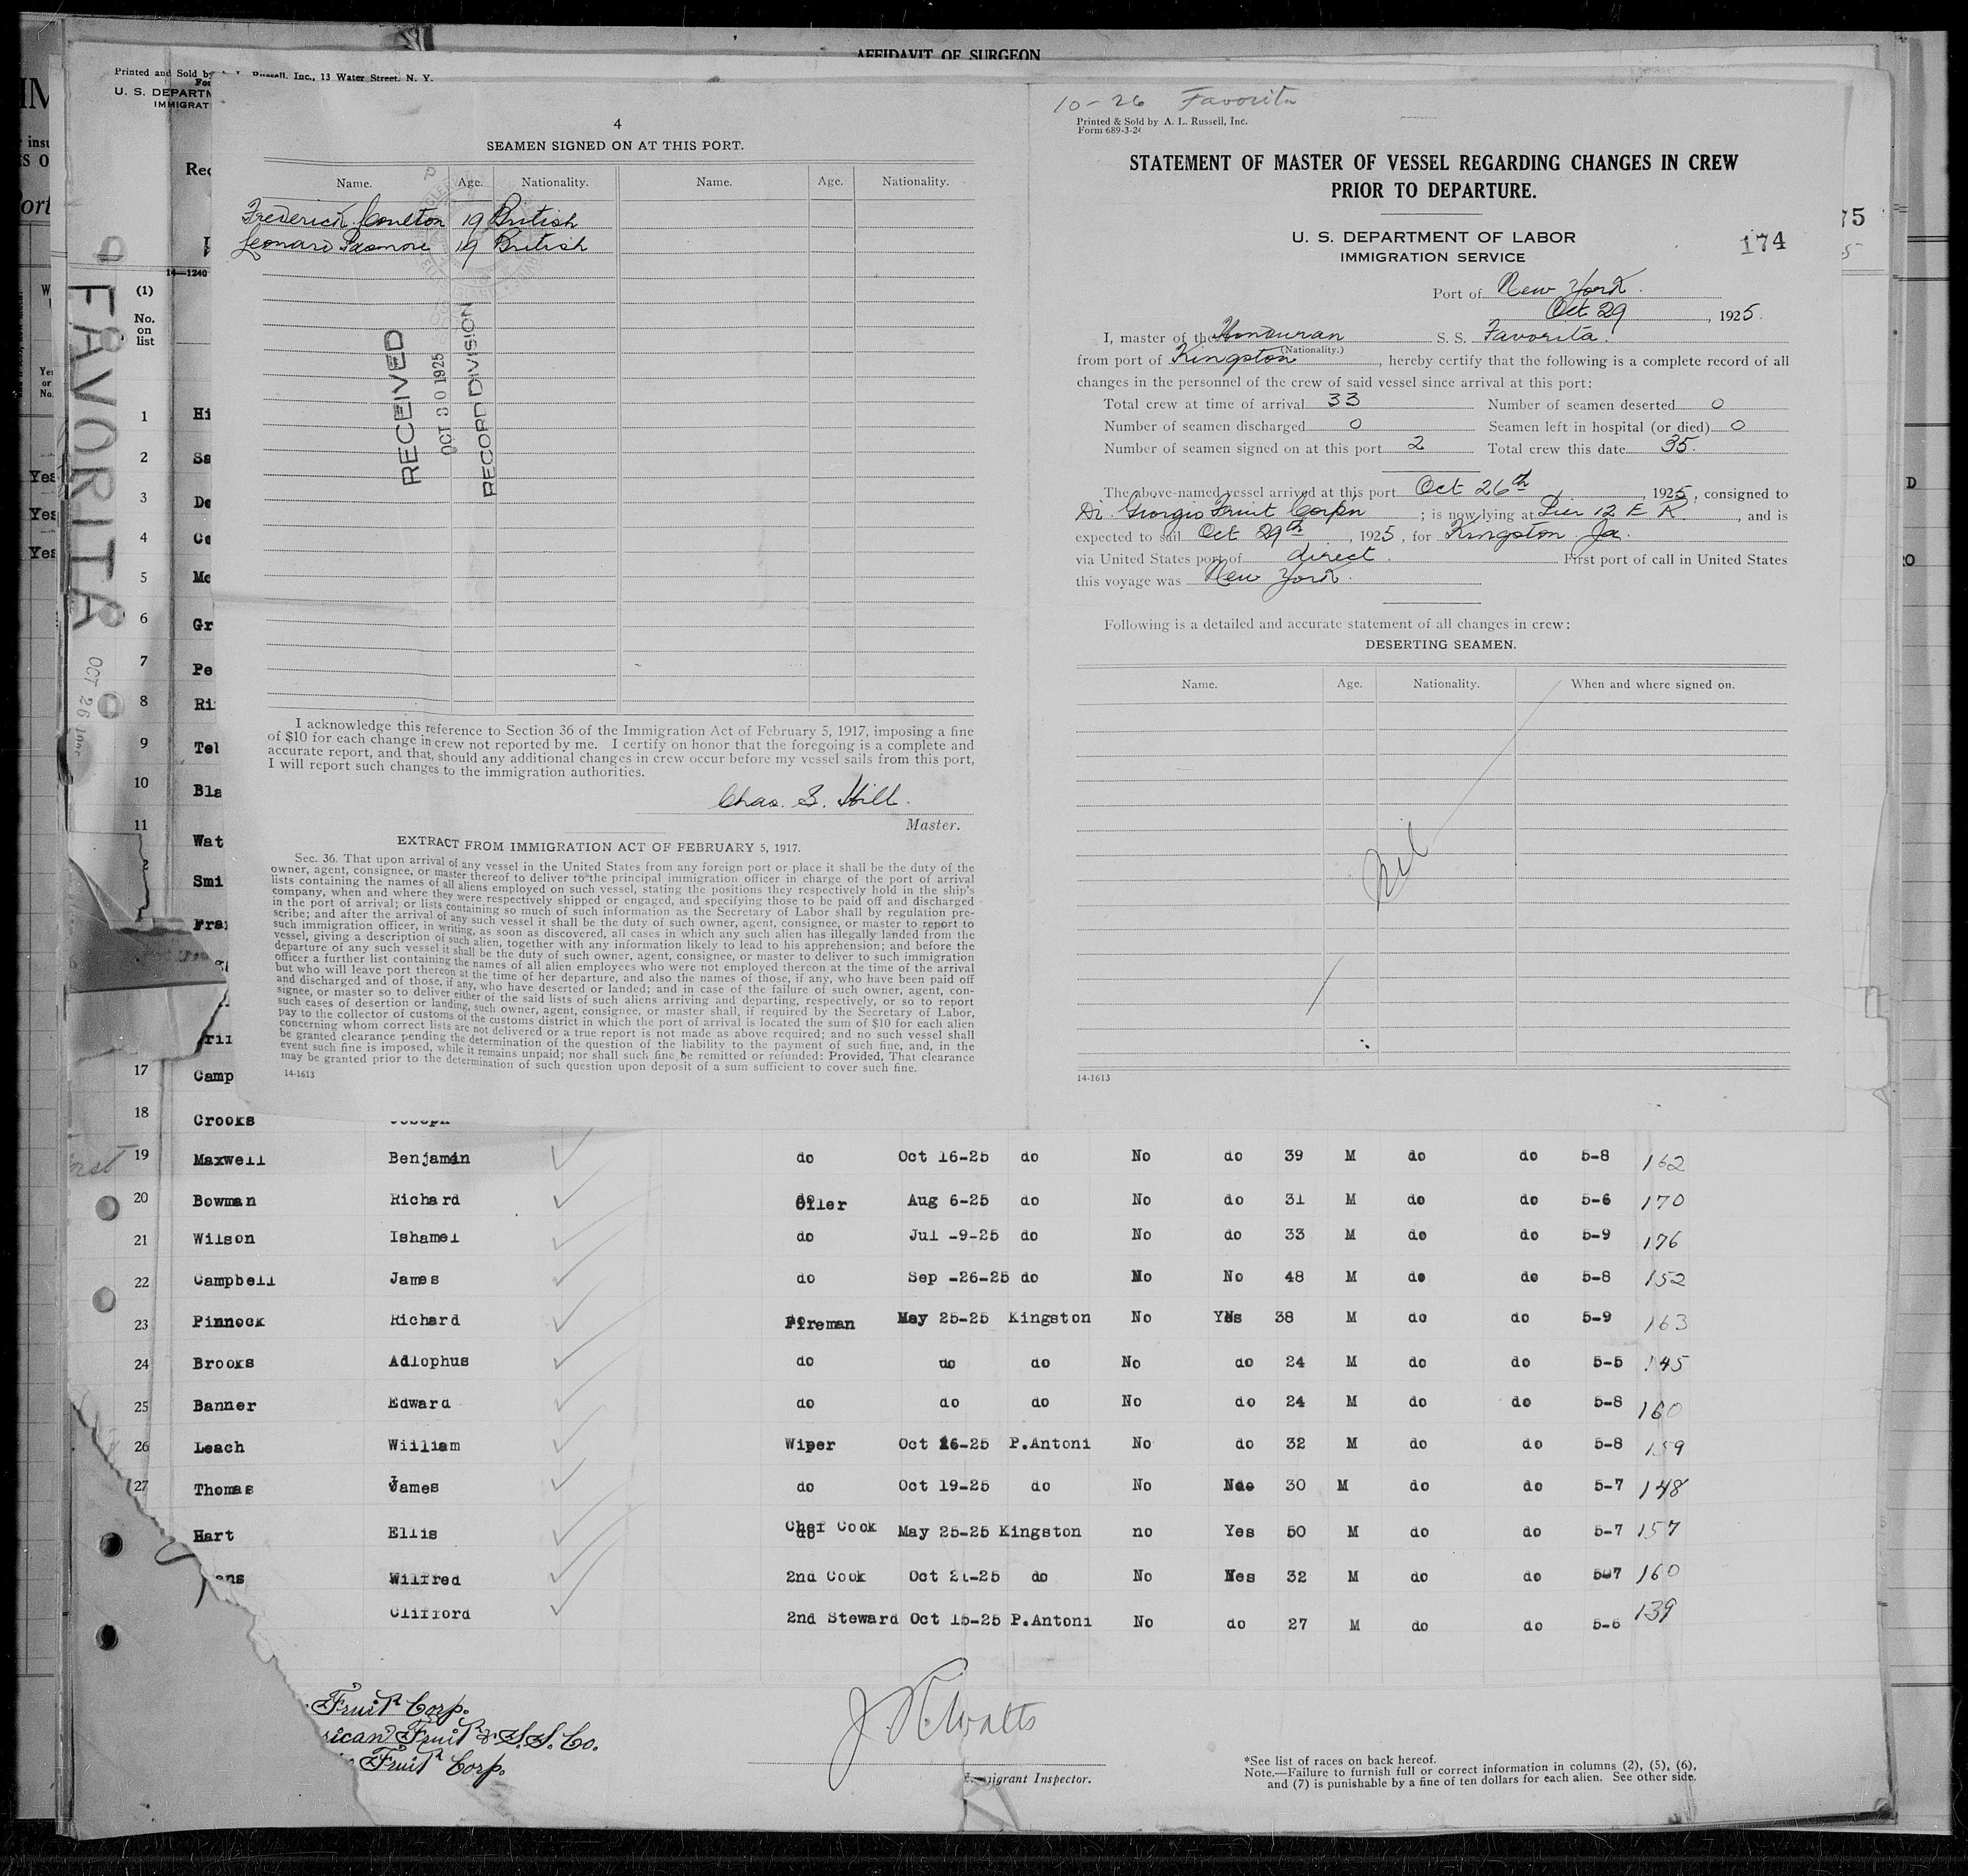 AFFIDAVIT OF SURGEON
Printed and Sold by Russell, Inc., 13 Water Street, N. Y.
U. S. DEPARTM
IMMIGRAT
Rec
14—1240
FAVORITA
OCT 26
(1)
No.
on
list
1 Hi
2 Sa
3 De
4 Co
5 Mc
6 Gr
7 Pe
8 Ri
9 Tel
10 Bla
11 Wat
Smi
Fra
17 Camp
18 Crooks Joseph
4
SEAMEN SIGNED ON AT THIS PORT.
Name. Age. Nationality. Name. Age. Nationality.
Frederick Coulton 19 British
Leonard Pasmore 19 British
RECEIVED
OCT 30 1925
RECORD DIVISION
I acknowledge this reference to Section 36 of the Immigration Act of February 5, 1917, imposing a fine
of $10 for each change in crew not reported by me. I certify on honor that the foregoing is a complete and
accurate report, and that, should any additional changes in crew occur before my vessel sails from this port,
I will report such changes to the immigration authorities.
Chas. S. Hill.
Master.
EXTRACT FROM IMMIGRATION ACT OF FEBRUARY 5, 1917.
Sec. 36. That upon arrival of any vessel in the United States from any foreign port or place it shall be the duty of the
owner, agent, consignee, or master thereof to deliver to the principal immigration officer in charge of the port of arrival
lists containing the names of all aliens employed on such vessel, stating the positions they respectively hold in the ship's
company, when and where they were respectively shipped or engaged, and specifying those to be paid off and discharged
in the port of arrival; or lists containing so much of such information as the Secretary of Labor shall by regulation pre-
scribe; and after the arrival of any such vessel it shall be the duty of such owner, agent, consignee, or master to report to
such immigration officer, in writing, as soon as discovered, all cases in which any such alien has illegally landed from the
vessel, giving a description of such alien, together with any information likely to lead to his apprehension; and before the
departure of any such vessel it shall be the duty of such owner, agent, consignee, or master to deliver to such immigration
officer a further list containing the names of all alien employees who were not employed thereon at the time of the arrival
but who will leave port thereon at the time of her departure, and also the names of those, if any, who have been paid off
and discharged and of those, if any, who have deserted or landed; and in case of the failure of such owner, agent, con-
signee, or master so to deliver either of the said lists of such aliens arriving and departing, respectively, or so to report
such cases of desertion or landing, such owner, agent, consignee, or master shall, if required by the Secretary of Labor,
pay to the collector of customs of the customs district in which the port of arrival is located the sum of $10 for each alien
concerning whom correct lists are not delivered or a true report is not made as above required; and no such vessel shall
be granted clearance pending the determination of the question of the liability to the payment of such fine, and, in the
event such fine is imposed, while it remains unpaid; nor shall such fine be remitted or refunded: Provided, That clearance
may be granted prior to the determination of such question upon deposit of a sum sufficient to cover such fine.
14-1613
10-26 Favorita
Printed & Sold by A. L. Russell, Inc.
Form 689-3-24
STATEMENT OF MASTER OF VESSEL REGARDING CHANGES IN CREW
PRIOR TO DEPARTURE.
U. S. DEPARTMENT OF LABOR
IMMIGRATION SERVICE
174
75
Port of New York.
Oct 29, 1925.
I, master of the Honduran S. S. Favorita.
(Nationality.)
from port of Kingston, hereby certify that the following is a complete record of all
changes in the personnel of the crew of said vessel since arrival at this port:
Total crew at time of arrival 33 Number of seamen deserted 0
Number of seamen discharged 0 Seamen left in hospital (or died) 0
Number of seamen signed on at this port 2 Total crew this date 35.
The above-named vessel arrived at this port Oct 26th, 1925, consigned to
Di Giorgio Fruit Corpn; is now lying at Pier 12 E R, and is
expected to sail Oct 29th, 1925, for Kingston Ja.
via United States port of direct. First port of call in United States
this voyage was New York.
Following is a detailed and accurate statement of all changes in crew:
DESERTING SEAMEN.
Name. Age. Nationality. When and where signed on.
Nil
14-1613
19 Maxwell Benjamin do Oct 16-25 do No do 39 M do do 5-8 162
20 Bowman Richard Oiler Aug 6-25 do No do 31 M do do 5-6 170
21 Wilson Ishamel do Jul -9-25 do No do 33 M do do 5-9 176
22 Campbell James do Sep -26-25 do No No 48 M do do 5-8 152
23 Pinnock Richard Fireman May 25-25 Kingston No Yes 38 M do do 5-9 163
24 Brooks Adlophus do do do No do 24 M do do 5-5 145
25 Banner Edward do do do No do 24 M do do 5-8 160
26 Leach William Wiper Oct 16-25 P.Antoni No do 32 M do do 5-8 159
27 Thomas James do Oct 19-25 do No 30 M do do 5-7 148
Hart Ellis Chef Cook May 25-25 Kingston no Yes 50 M do do 5-7 157
ens Wilfred 2nd Cook Oct 21-25 do No Yes 32 M do do 5-7 160
Clifford 2nd Steward Oct 15-25 P.Antoni No do 27 M do do 5-6 139
Fruit Corp.
rican Fruit & S.S. Co.
Fruit Corp.
Immigrant Inspector.
*See list of races on back hereof.
Note.—Failure to furnish full or correct information in columns (2), (5), (6),
and (7) is punishable by a fine of ten dollars for each alien. See other side.